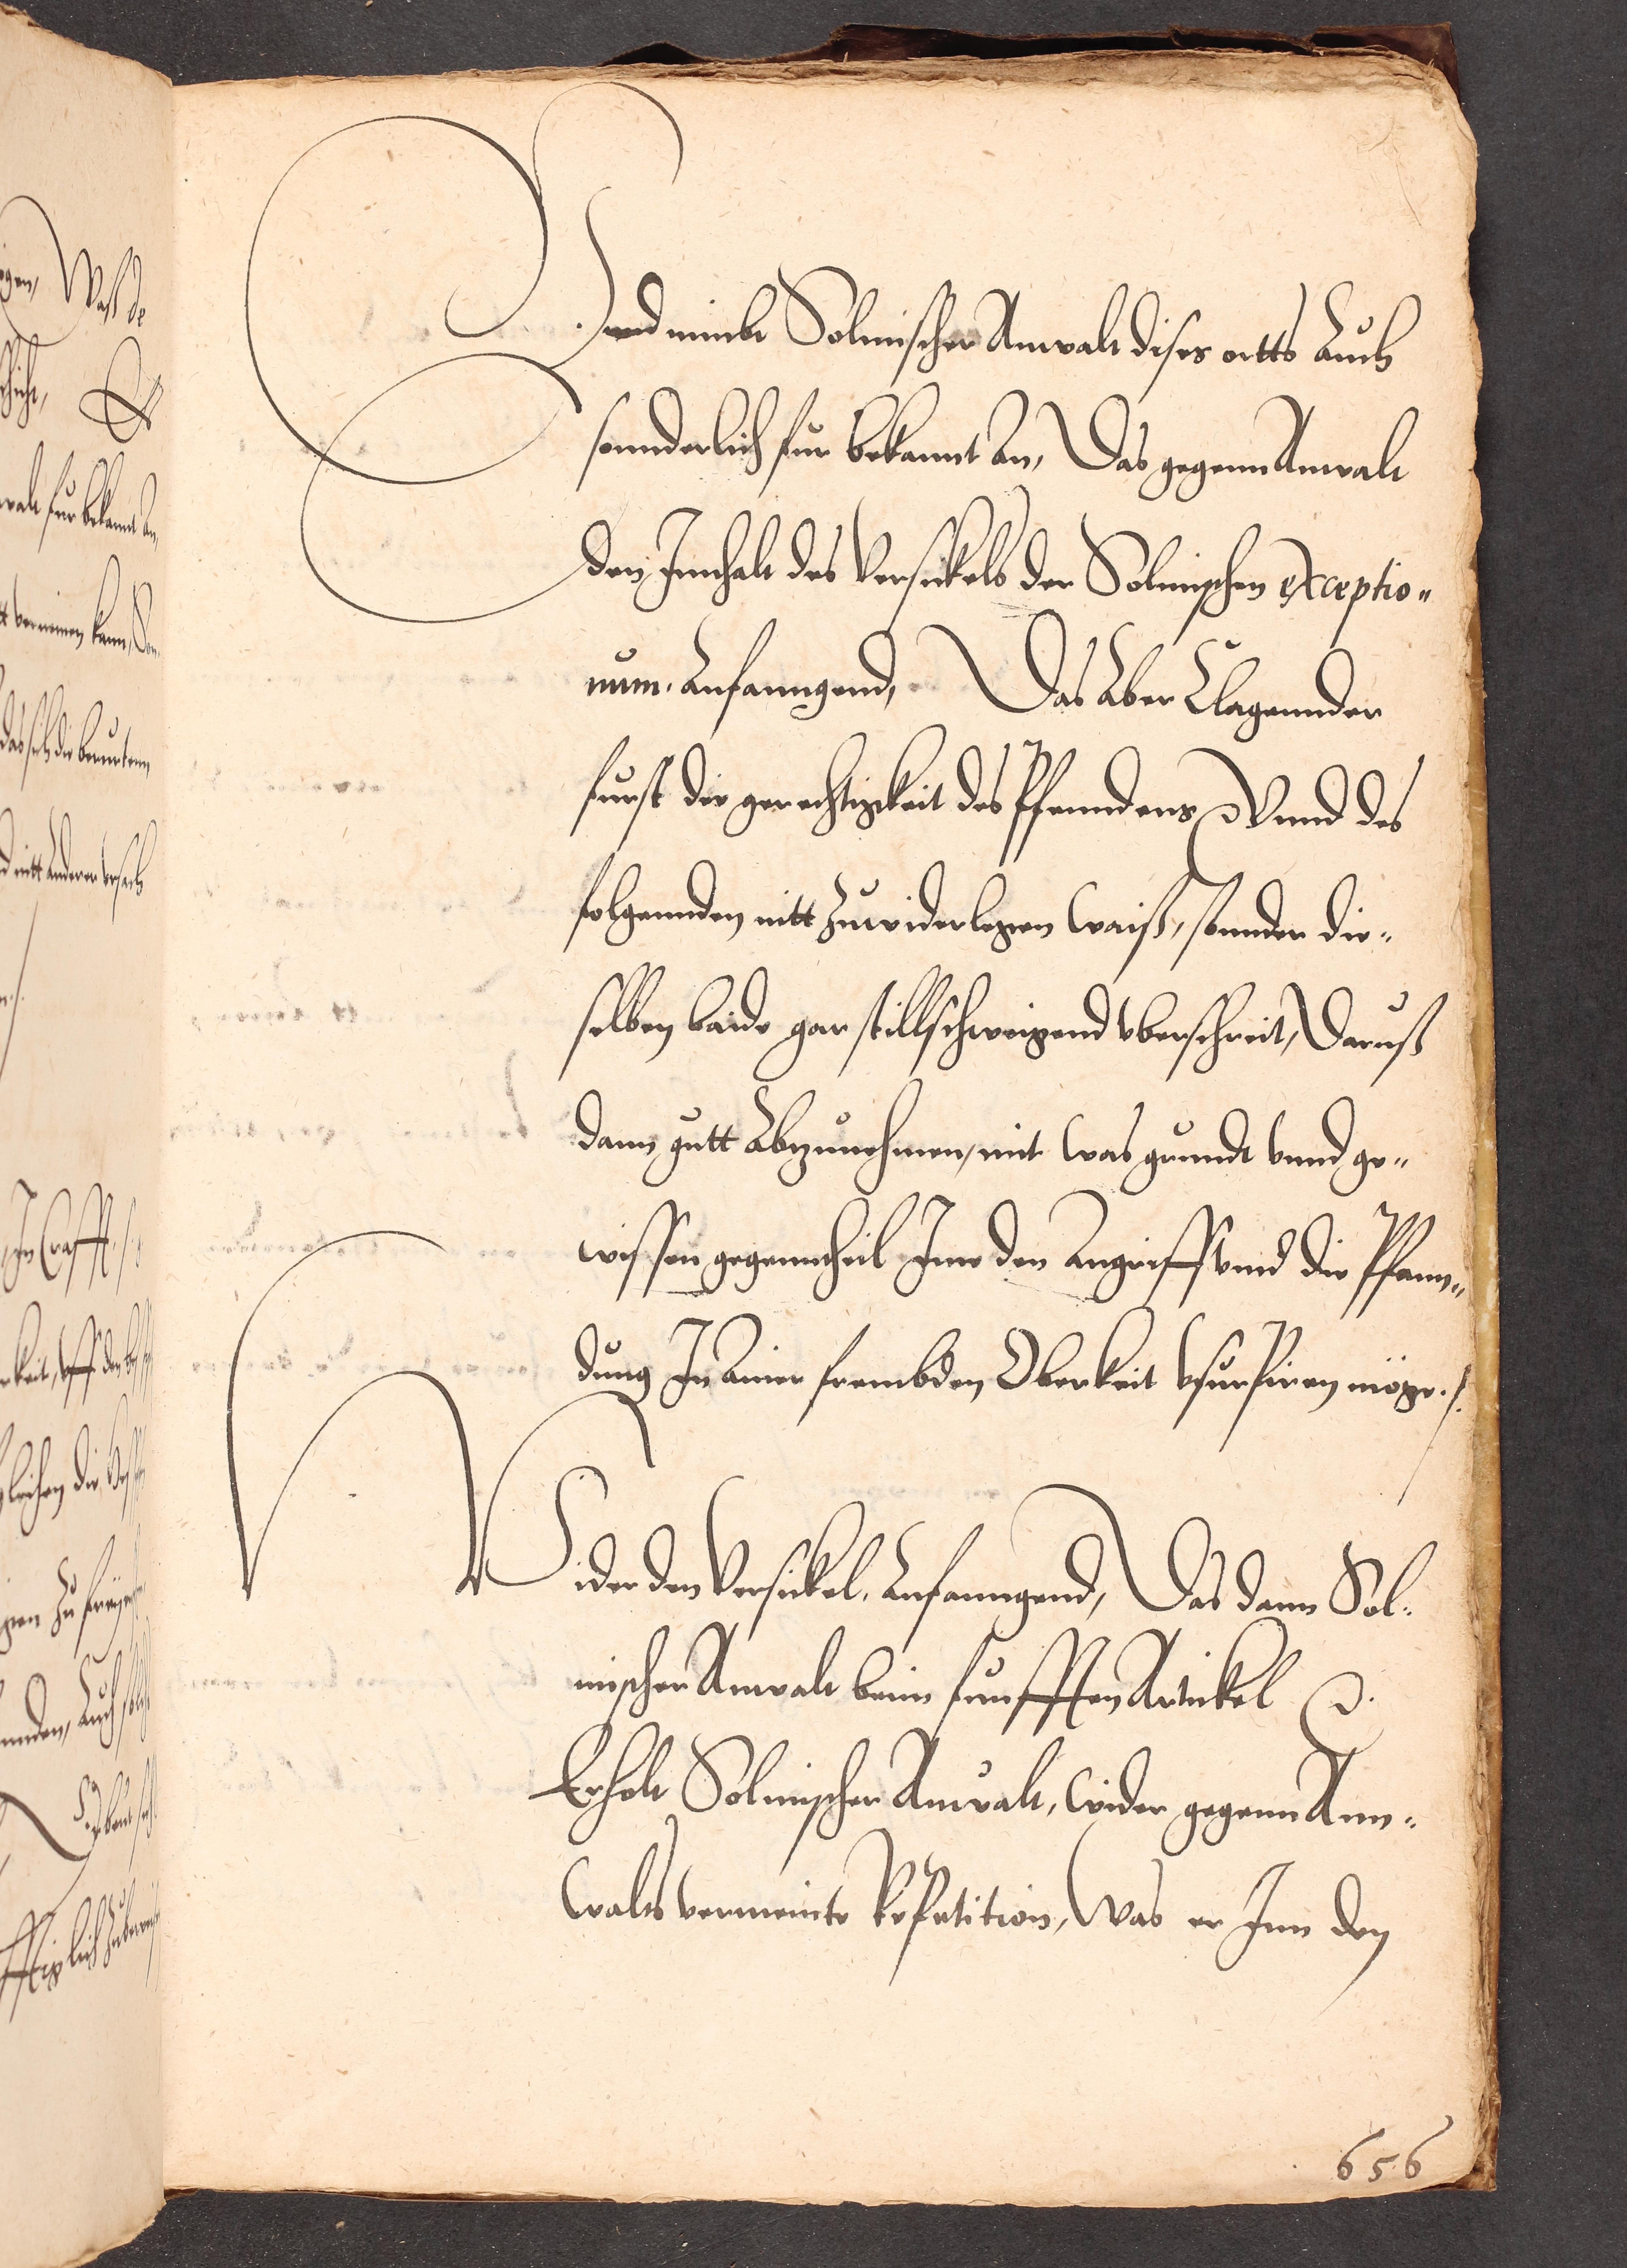 Vnd nimbt Solmischer Anwalt dises ortts Auch
sonnderlich fur bekannt An, Das gegenn Anwalt
den Innhalt des Versickels der Solmischen exceptio„
num. Anfanngend, Das Aber Clagennder
furst die gerechtigkeit des Pfenndens &c. Vnnd des
folgennden nitt zuwiderlegen waiß, sonnder die„
selben baide gar stillschweigend vberschreit, Daruß
dann gutt Abzunehmen, mit was grundt vnnd ge„
wissen gegenntheil Ime den Angriff vnnd die Pfenn„
dung In ainer frembden Oberkeit vsurpiren möge ./.
Wider den Versickel. Anfanngend, Das dann Sol„
mischer Anwalt beim funfften Artickel &c.
Erholt Solmischer Anwalt, wider gegenn Ann„
walts vermeinte Repetition, Was er Inn den
656